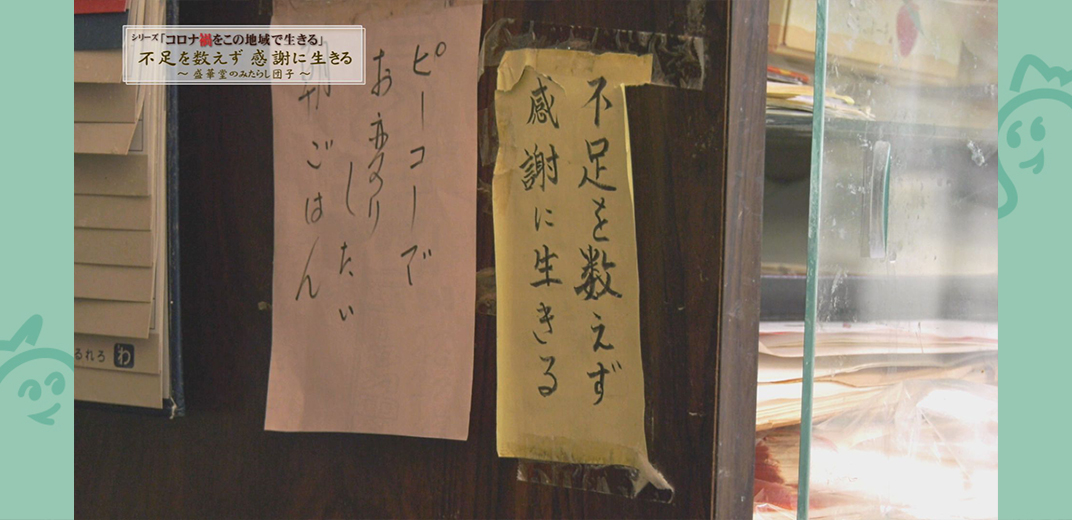 シリーズ「コロナ禍をこの地域で生きる」
不足を数えず 感謝に生きる
～ 盛華堂のみたらし団子 ～
不足を数えず
感謝に生きる
ピーコーで
お変り
したい
ごはん
るれろ わ